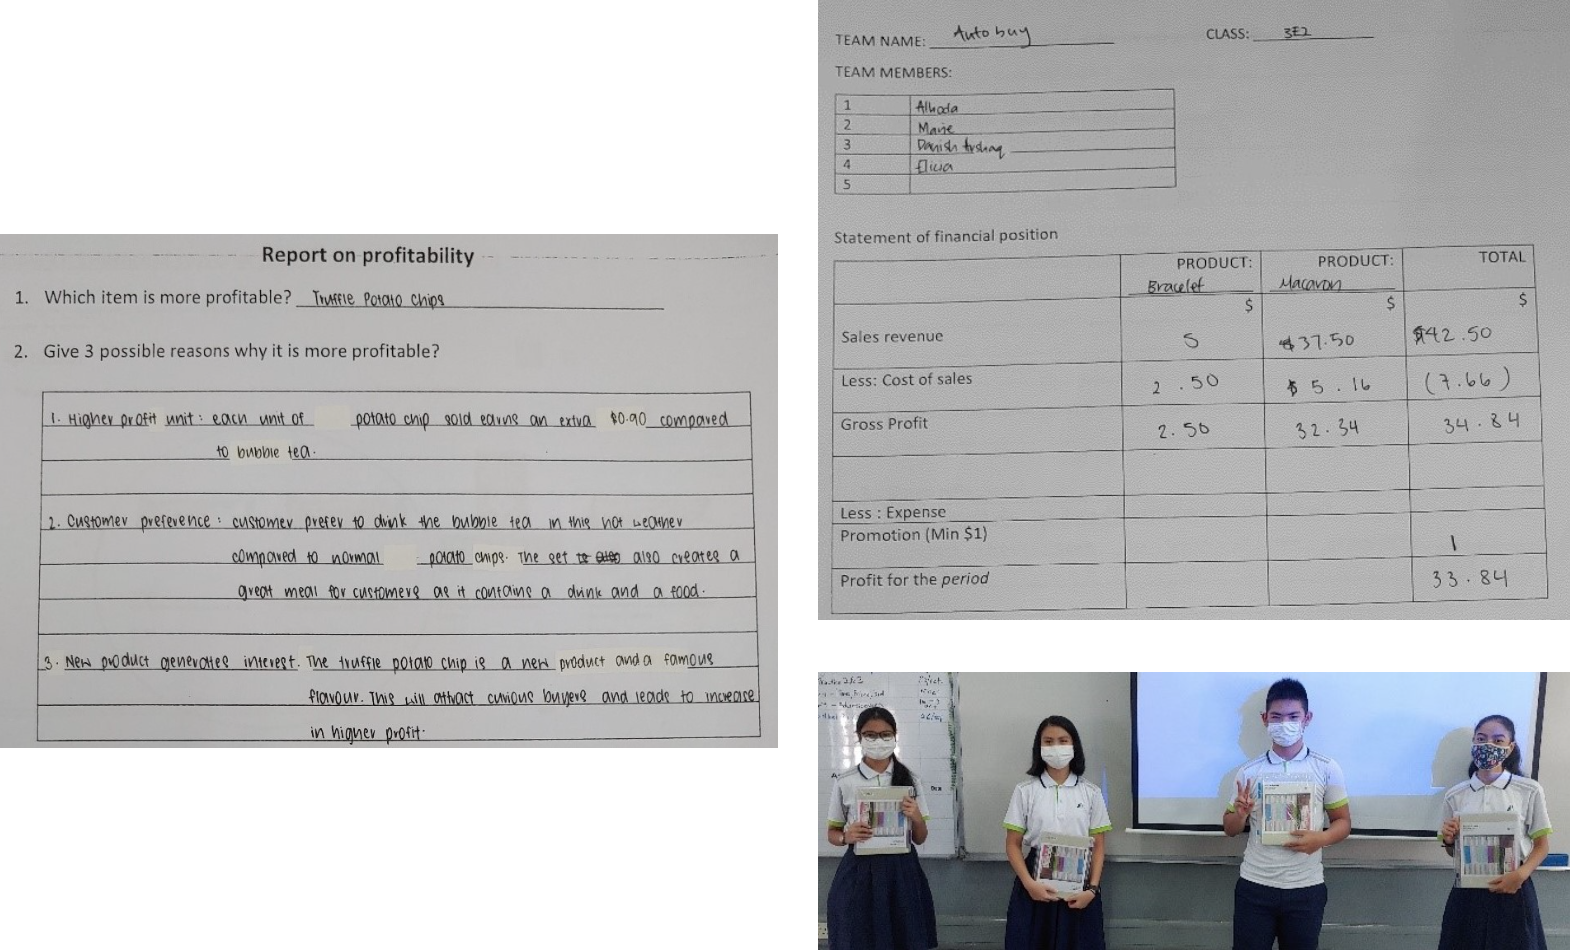 Report on profitability
1. Which item is more profitable? Truffle Potato Chips
2. Give 3 possible reasons why it is more profitable?
1. Higher profit unit : each unit of potato chip sold earns an extra $0.90 compared
to bubble tea.
2. Customer preference : customer prefer to drink the bubble tea in this hot weather
compared to normal potato chips. The set to also also creates a
great meal for customers as it contains a drink and a food.
3. New product generates interest. The truffle potato chip is a new product and a famous
flavour. This will attract curious buyers and leads to increase
in higher profit.
TEAM NAME: Autobuy CLASS: 3E2
TEAM MEMBERS:
1
2 Marie
3 Danish
4 Elicia
5
Statement of financial position
PRODUCT: Bracelet PRODUCT: Macaron TOTAL
$ $ $
Sales revenue 5 $37.50 $42.50
Less: Cost of sales 2.50 $5.16 (7.66)
Gross Profit 2.50 32.34 34.84
Less : Expense
Promotion (Min $1) 1
Profit for the period 33.84